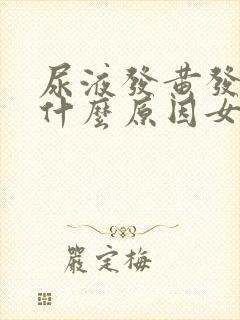 尿液發黃發
什麼原因女
嚴定梅